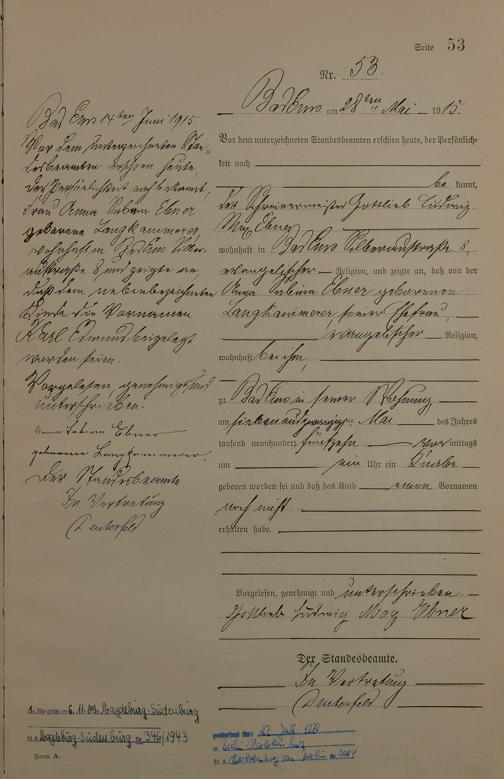 Seite 53
Nr. 53.
Bad Ems am 28ten Mai 1915.
Vor dem unterzeichneten Standesbeamten erschien heute, der Persönlich-
keit nach
be kannt,
der Schreinermeister Gottlieb Ludwig
Max Ebner
wohnhaft in Bad Ems Silberaustraße 8,
evangelischer Religion, und zeigte an, daß von der
Anna Sabina Ebner geborenen
Langhammerer, seiner Ehefrau,
evangelischer Religion,
wohnhaft bei ihm,
zu Bad Ems in seiner Wohnung
am siebenundzwanzigsten Mai des Jahres
tausend neunhundert fünfzehn vor mittags
um ein Uhr ein Knabe
geboren worden sei und daß das Kind einen Vornamen
noch nicht
erhalten habe.
Vorgelesen, genehmigt und unterschrieben
Gottlieb Ludwig Max Ebner
Der Standesbeamte.
In Vertretung
Bad Ems 14ten Juni 1915
Vor dem unterzeichneten Stan-
desbeamten erschien heute,
der Persönlichkeit nach bekannt,
Frau Anna Sabina Ebner
geborene Langhammerer,
wohnhaft in Bad Ems Silber-
austraße 8 und zeigte an,
daß dem nebenbezeichneten
Kinde die Vornamen
Karl Edmund beigelegt
worden seien.
Vorgelesen, genehmigt und
unterschrieben.
Anna Sabina Ebner
geborene Langhammerer.
Der Standesbeamte
In Vertretung
1. Ehe am 6.11.43 Magdeburg-Südenburg
St.A. Magdeburg-Südenburg Nr. 346/1943
Form. A.
27. Juli
in Berlin Charlottenburg
St. A. Charlottenburg von Berlin Nr.